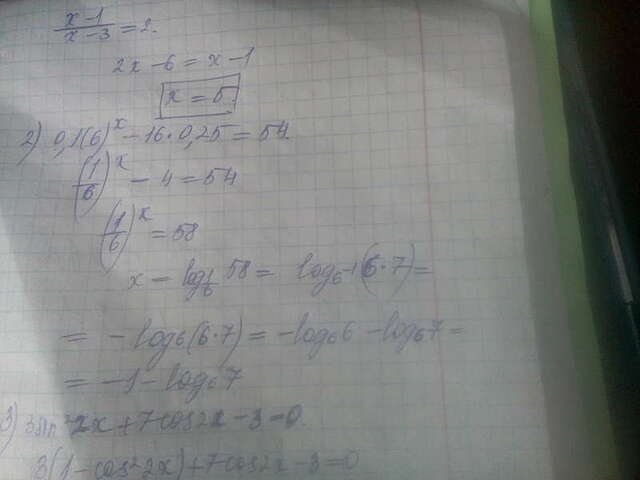 x-1/x-3 = 2.
2x-6 = x-1
x = 5.
2) 0,1(6)^x - 16·0,25 = 54.
(1/6)^x - 4 = 54
(1/6)^x = 58
x - log_{1/6} 58 = log_{6^{-1}}(6·7) =
= -log_6(6·7) = -log_6 6 - log_6 7 =
= -1 - log_6 7
3) 3sin²2x + 7cos2x - 3 = 0.
3(1-cos²2x) + 7cos2x - 3 = 0